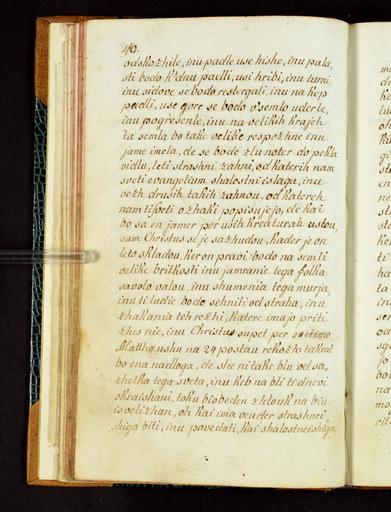 40.
odskozhile, inu padle use hishe, inu pala,
sti bodo k'dnu padli, usi hribi, inu turni,
inu sidove se bodo restergali, inu na kup
padli, use gore se bodo v'semlo uderle,
inu pogresenle, inu na velikih krajih
ta semla bo take velike respozhne inu
jame imela, de se bode zlu noter do pekla
vidlu, leti strashni zahni, od katerih nam
sveti evangelium shalostnei slaga, inu
vezh drusih takih zahnou, od katereh
nam ti sveti ozhaki popisujejo, de kai
bo sa en jamer per useh kreaturah ustou,
sam Christus se je sazhudou, kader je on
leto skladou, ker on pravi bodo na semli
velike britkosti inu jamranie tega folka
savolo valou, inu shumenia tega murja,
inu ti ludie bodo sehnili od straha, inu
zhakania teh rezhi, katere imajo priti
zhes nie, inu Christus supet per svetimo
Matthaushu na 24 postau rekozh: takrat
bo ena nadloga, de she ni take blu od sa,
zhetka tega sveta, inu keb na bli ti dnevi
okraishani, taku bi obeden zhlouk na biu
isvelizhan, oh kai ima vender strashnei
shiga biti, inu povedati, kai shalostneishiga